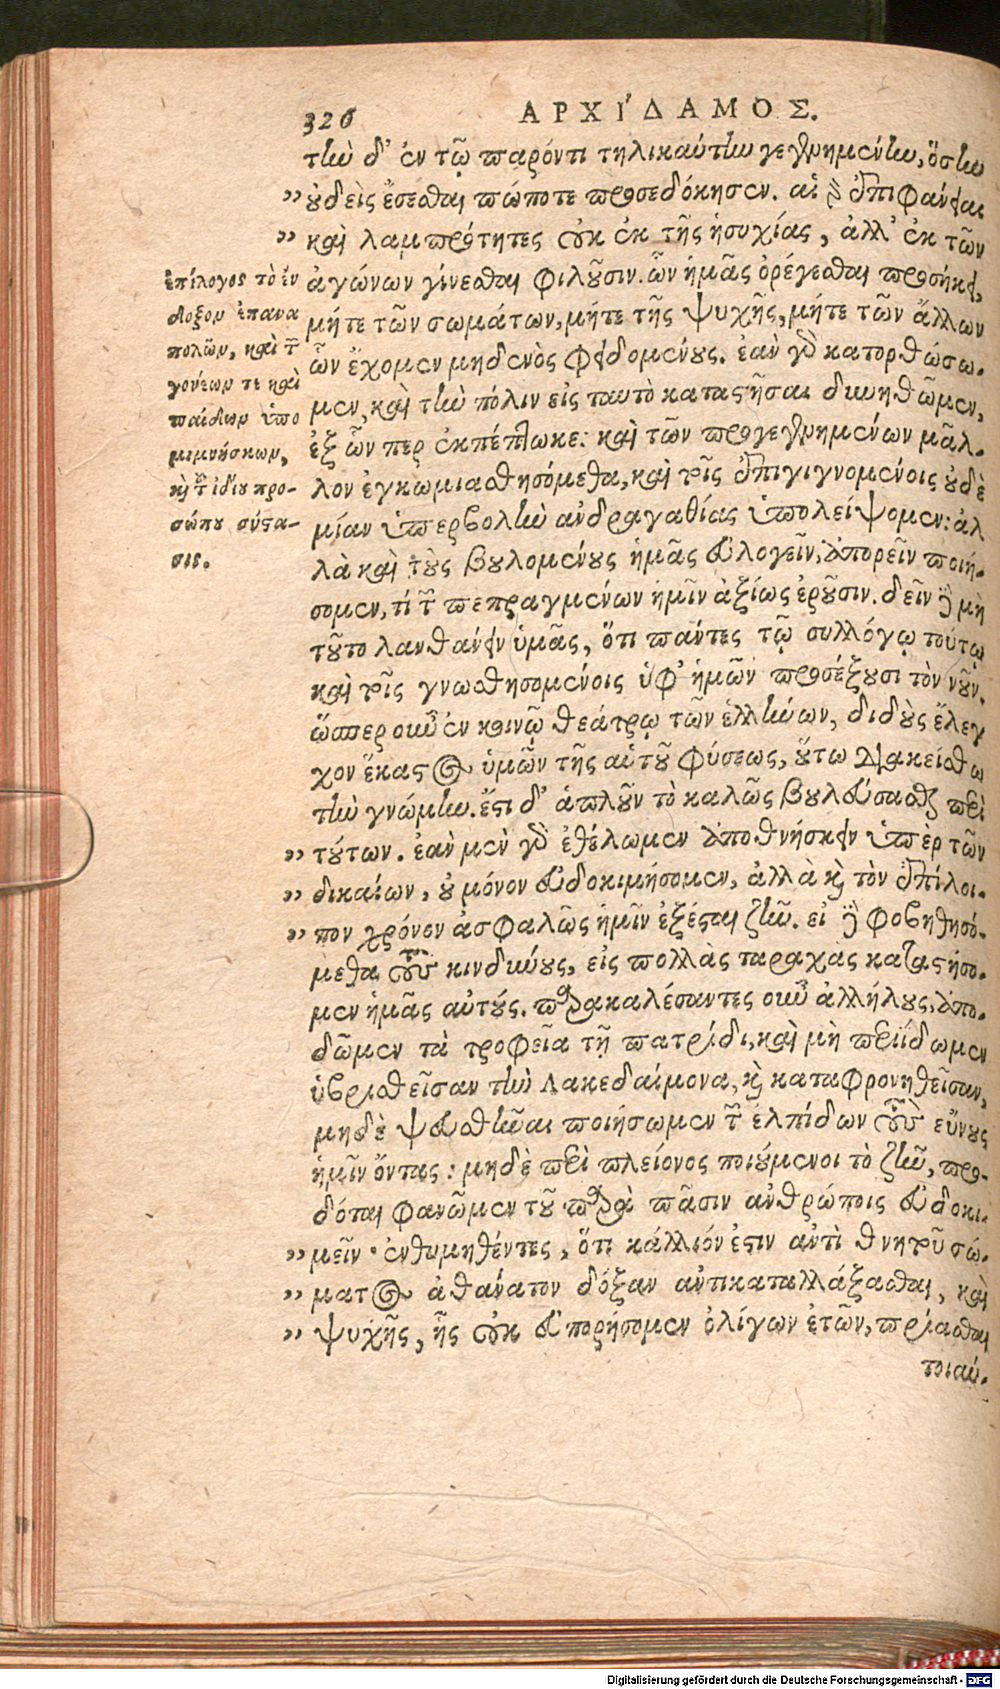 326
ΑΡΧΙ´ΔΑΜΟΣ.
τὴν δ' ἐν τῷ παρόντι τηλικαύτην γεγενημένην, ὅσην
„ οὐδεὶς ἔσεσθαι πώποτε προσεδόκησεν. αἱ γὰρ ἐπιφάνειαι
„ καὶ λαμπρότητες οὐκ ἐκ τῆς ἡσυχίας, ἀλλ' ἐκ τῶν
ἀγώνων γίνεσθαι φιλοῦσιν. ὧν ἡμᾶς ὀρέγεσθαι προσήκει,
μήτε τῶν σωμάτων, μήτε τῆς ψυχῆς, μήτε τῶν ἄλλων
ὧν ἔχομεν μηδενὸς φειδομένους. ἐὰν γὰρ κατορθώσω-
μεν, καὶ τὴν πόλιν εἰς ταυτὸ καταστῆσαι δυνηθῶμεν,
ἐξ ὧν περ ἐκπέπτωκε: καὶ τῶν προγεγενημένων μᾶλ-
λον ἐγκωμιασθησόμεθα, καὶ τοῖς ἐπιγιγνομένοις οὐδε
μίαν ὑπερβολὴν ἀνδραγαθίας ὑπολείψομεν: ἀλ
λὰ καὶ τοὺς βουλομένους ἡμᾶς εὐλογεῖν, ἀπορεῖν ποιή-
σομεν, τί τῶν πεπραγμένων ἡμῖν ἀξίως ἐροῦσιν. δεῖν δὲ μὴ
τοῦτο λανθάνειν ὑμᾶς, ὅτι πάντες τῷ συλλόγῳ τούτῳ
καὶ τοῖς γνωσθησομένοις ὑφ' ἡμῶν προσέξουσι τὸν νοῦν.
ὥσπερ οὖν ἐν κοινῷ θεάτρῳ τῶν ἑλλήνων, διδοὺς ἔλεγ
χον ἕκαστος ὑμῶν τῆς αὑτοῦ φύσεως, οὕτω διακείσθω
τὴν γνώμην. ἔστι δ' ἁπλοῦν τὸ καλῶς βουλεύσασθαι περὶ
„ τούτων. ἐὰν μὲν γὰρ ἐθέλωμεν ἀποθνήσκειν ὑπὲρ τῶν
„ δικαίων, οὐ μόνον εὐδοκιμήσομεν, ἀλλὰ καὶ τὸν ἐπίλοι-
„ πον χρόνον ἀσφαλῶς ἡμῖν ἐξέσται ζῆν. εἰ δὲ φοβηθησό-
μεθα τοὺς κινδύνους, εἰς πολλὰς ταραχὰς καταστήσο-
μεν ἡμᾶς αὐτούς. παρακαλέσαντες οὖν ἀλλήλους, ἀπο-
δῶμεν τὰ τροφεῖα τῇ πατρίδι, καὶ μὴ περιΐδωμεν
ὑβρισθεῖσαν τὴν Λακεδαίμονα, καὶ καταφρονηθεῖσαν,
μηδὲ ψευσθῆναι ποιήσωμεν τῶν ἐλπίδων τοὺς εὔνους
ἡμῖν ὄντας: μηδὲ περὶ πλείονος ποιούμενοι τὸ ζῆν, προ-
δόται φανῶμεν τοῦ παρὰ πᾶσιν ἀνθρώποις εὐδοκι-
„ μεῖν· ἐνθυμηθέντες, ὅτι κάλλιόν ἐστιν ἀντὶ θνητοῦ σώ-
„ ματος ἀθάνατον δόξαν ἀντικαταλλάξασθαι, καὶ
„ ψυχῆς, ἧς οὐκ εὐπορήσομεν ὀλίγων ἐτῶν, πρίασθαι
τοιαύ-
ἐπίλογος τὸ ἔν
δοξον ἐπανα
πολῶν, καὶ τῶν
γονέων τε καὶ
παίδων ὑπο
μιμνήσκων,
καὶ τοῦ ἰδίου προ-
σώπου σύστα-
σις.
Digitalisierung gefördert durch die Deutsche Forschungsgemeinschaft - DFG